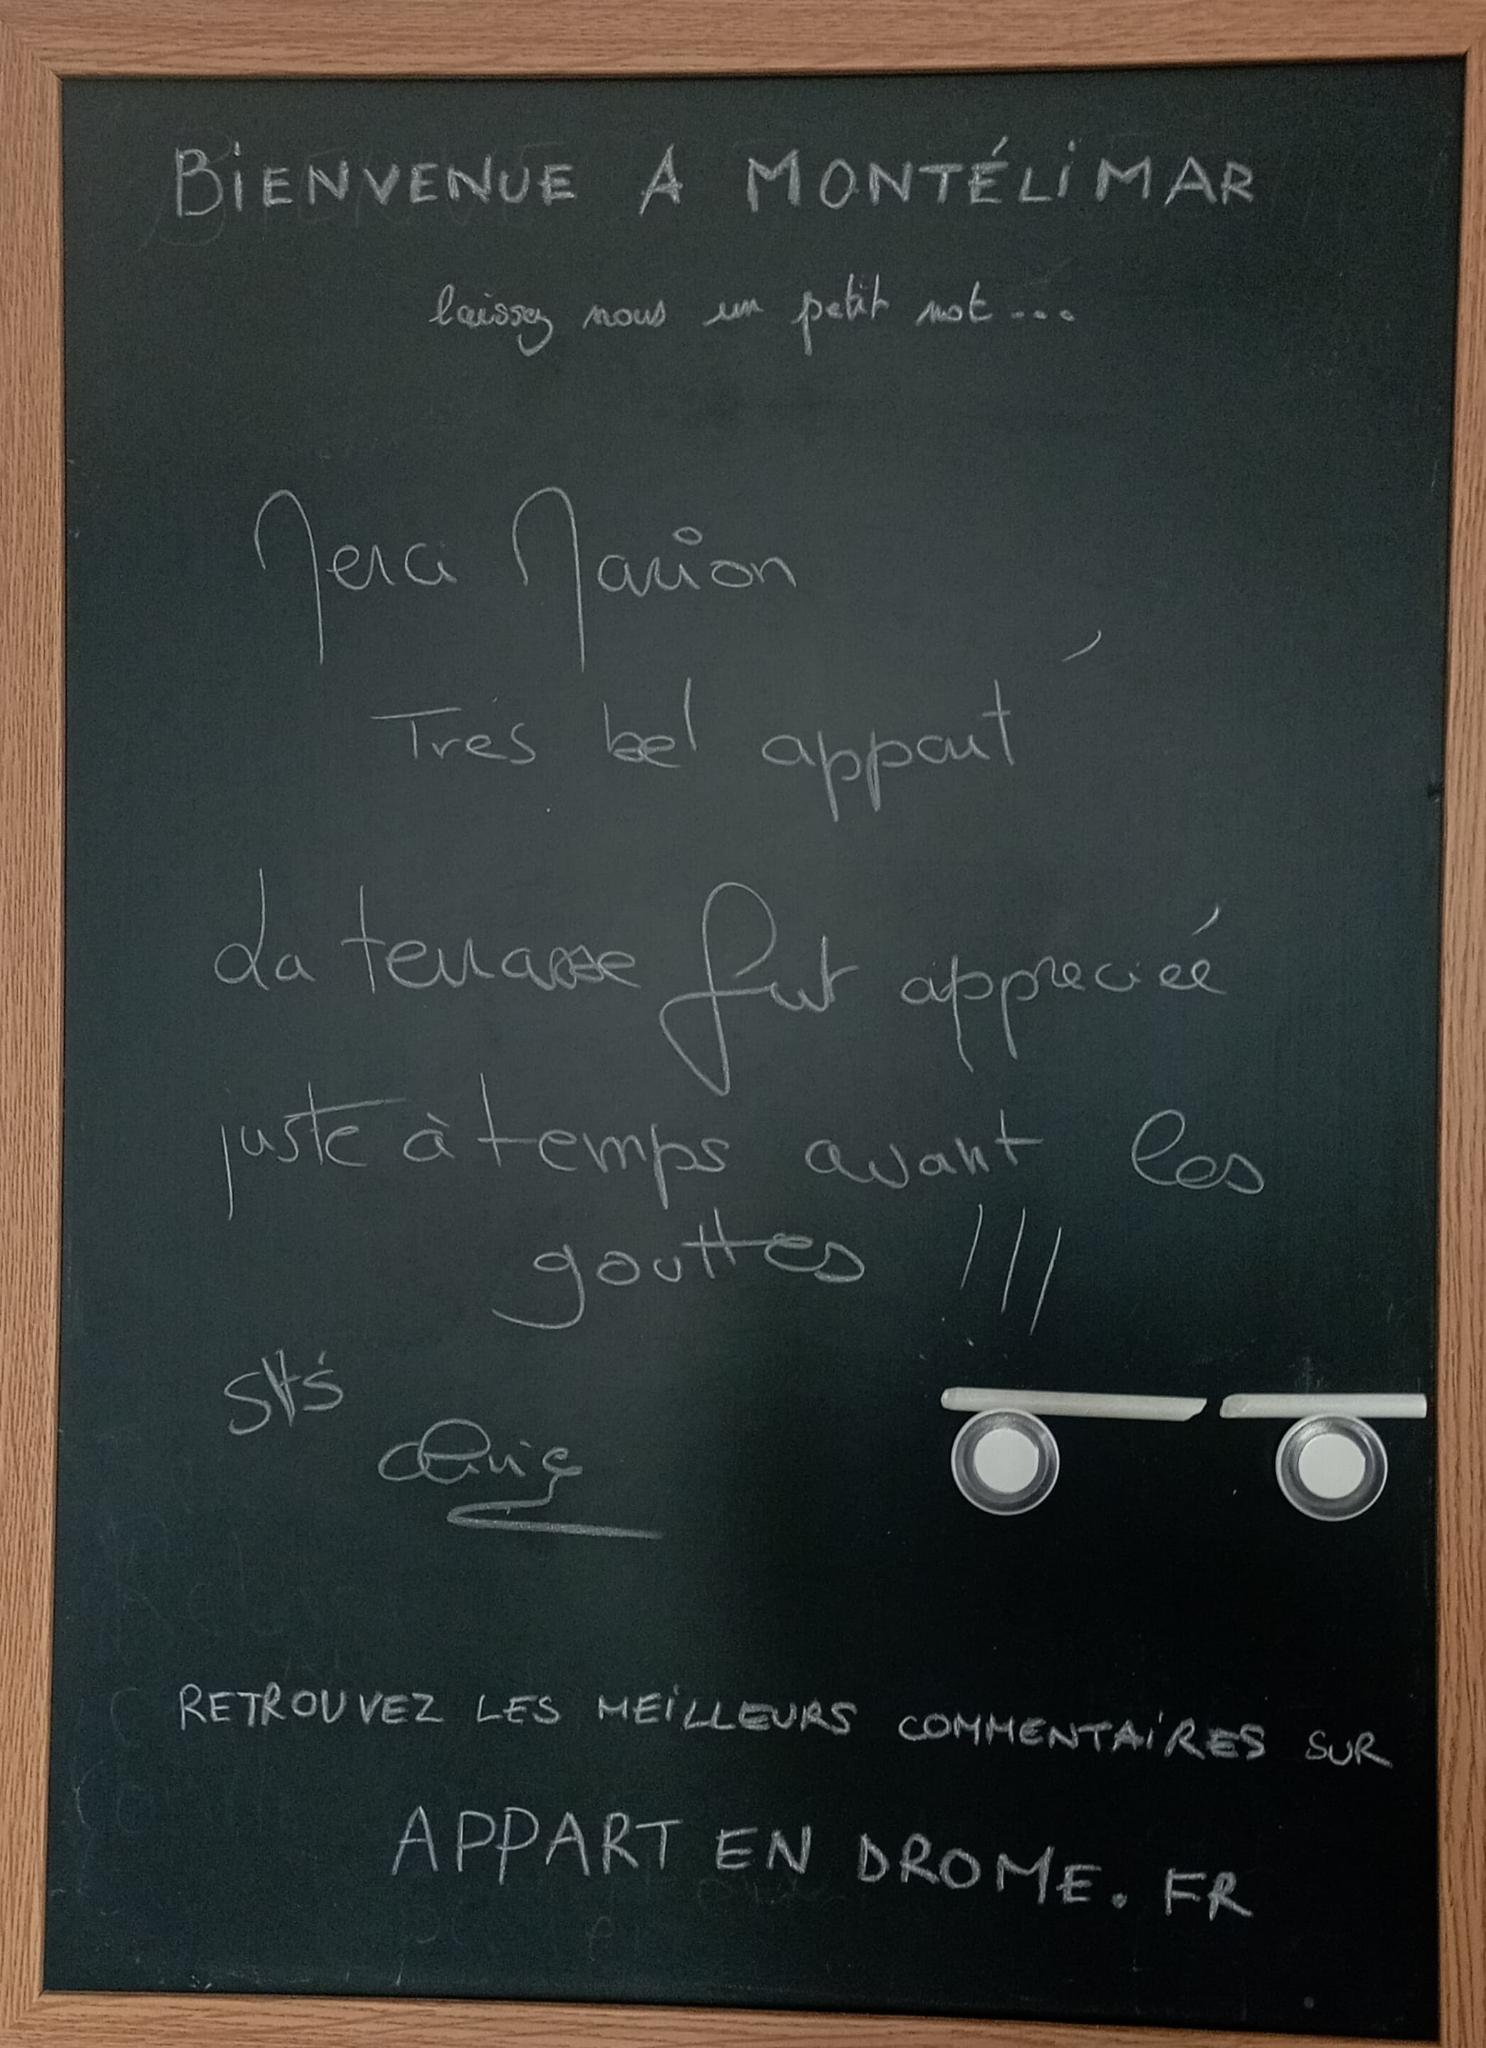 BIENVENUE A MONTÉLIMAR
laissez nous un petit mot...
Merci Marion
Très bel appart
La terrasse fut appreciée
juste à temps avant les
gouttes !!!
RETROUVEZ LES MEILLEURS COMMENTAIRES SUR
APPART EN DROME. FR